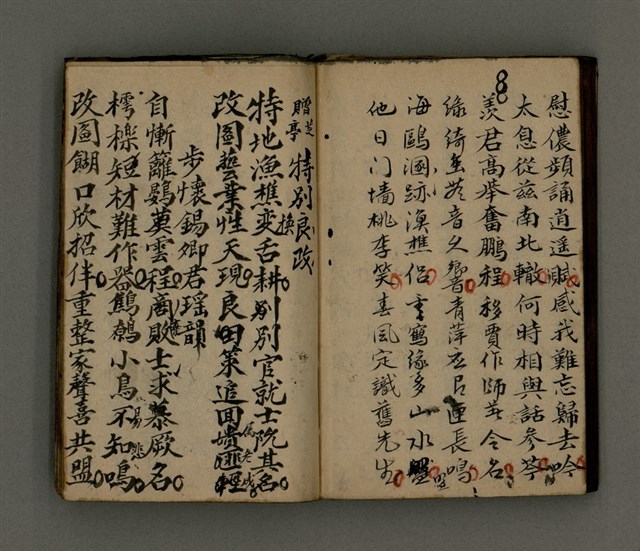 8
慰儂頻誦逍遙賦感我難忘歸去吟
太息從茲南北轍何時相與話參苓
羨君高舉奮鵬程移賈作師英令名
綠綺無絃音久響青萍在召匣長鳴
海鷗溷跡漁樵侶書寫緣多山水盟
他日门墻桃李笑春風定識舊先生
贈芝亭 特別良改
特地漁樵变舌耕別官就士沉其名
換
改圖藝業性天現良田策追回憤匪輕
步懷錫卿君瑤韻
自慚籬鷃莫雲程商敗士求慕厥名
樗櫟短材難作器鷦鷯小鳥不知鳴
改圖餬口欣招伴重整家聲喜共盟